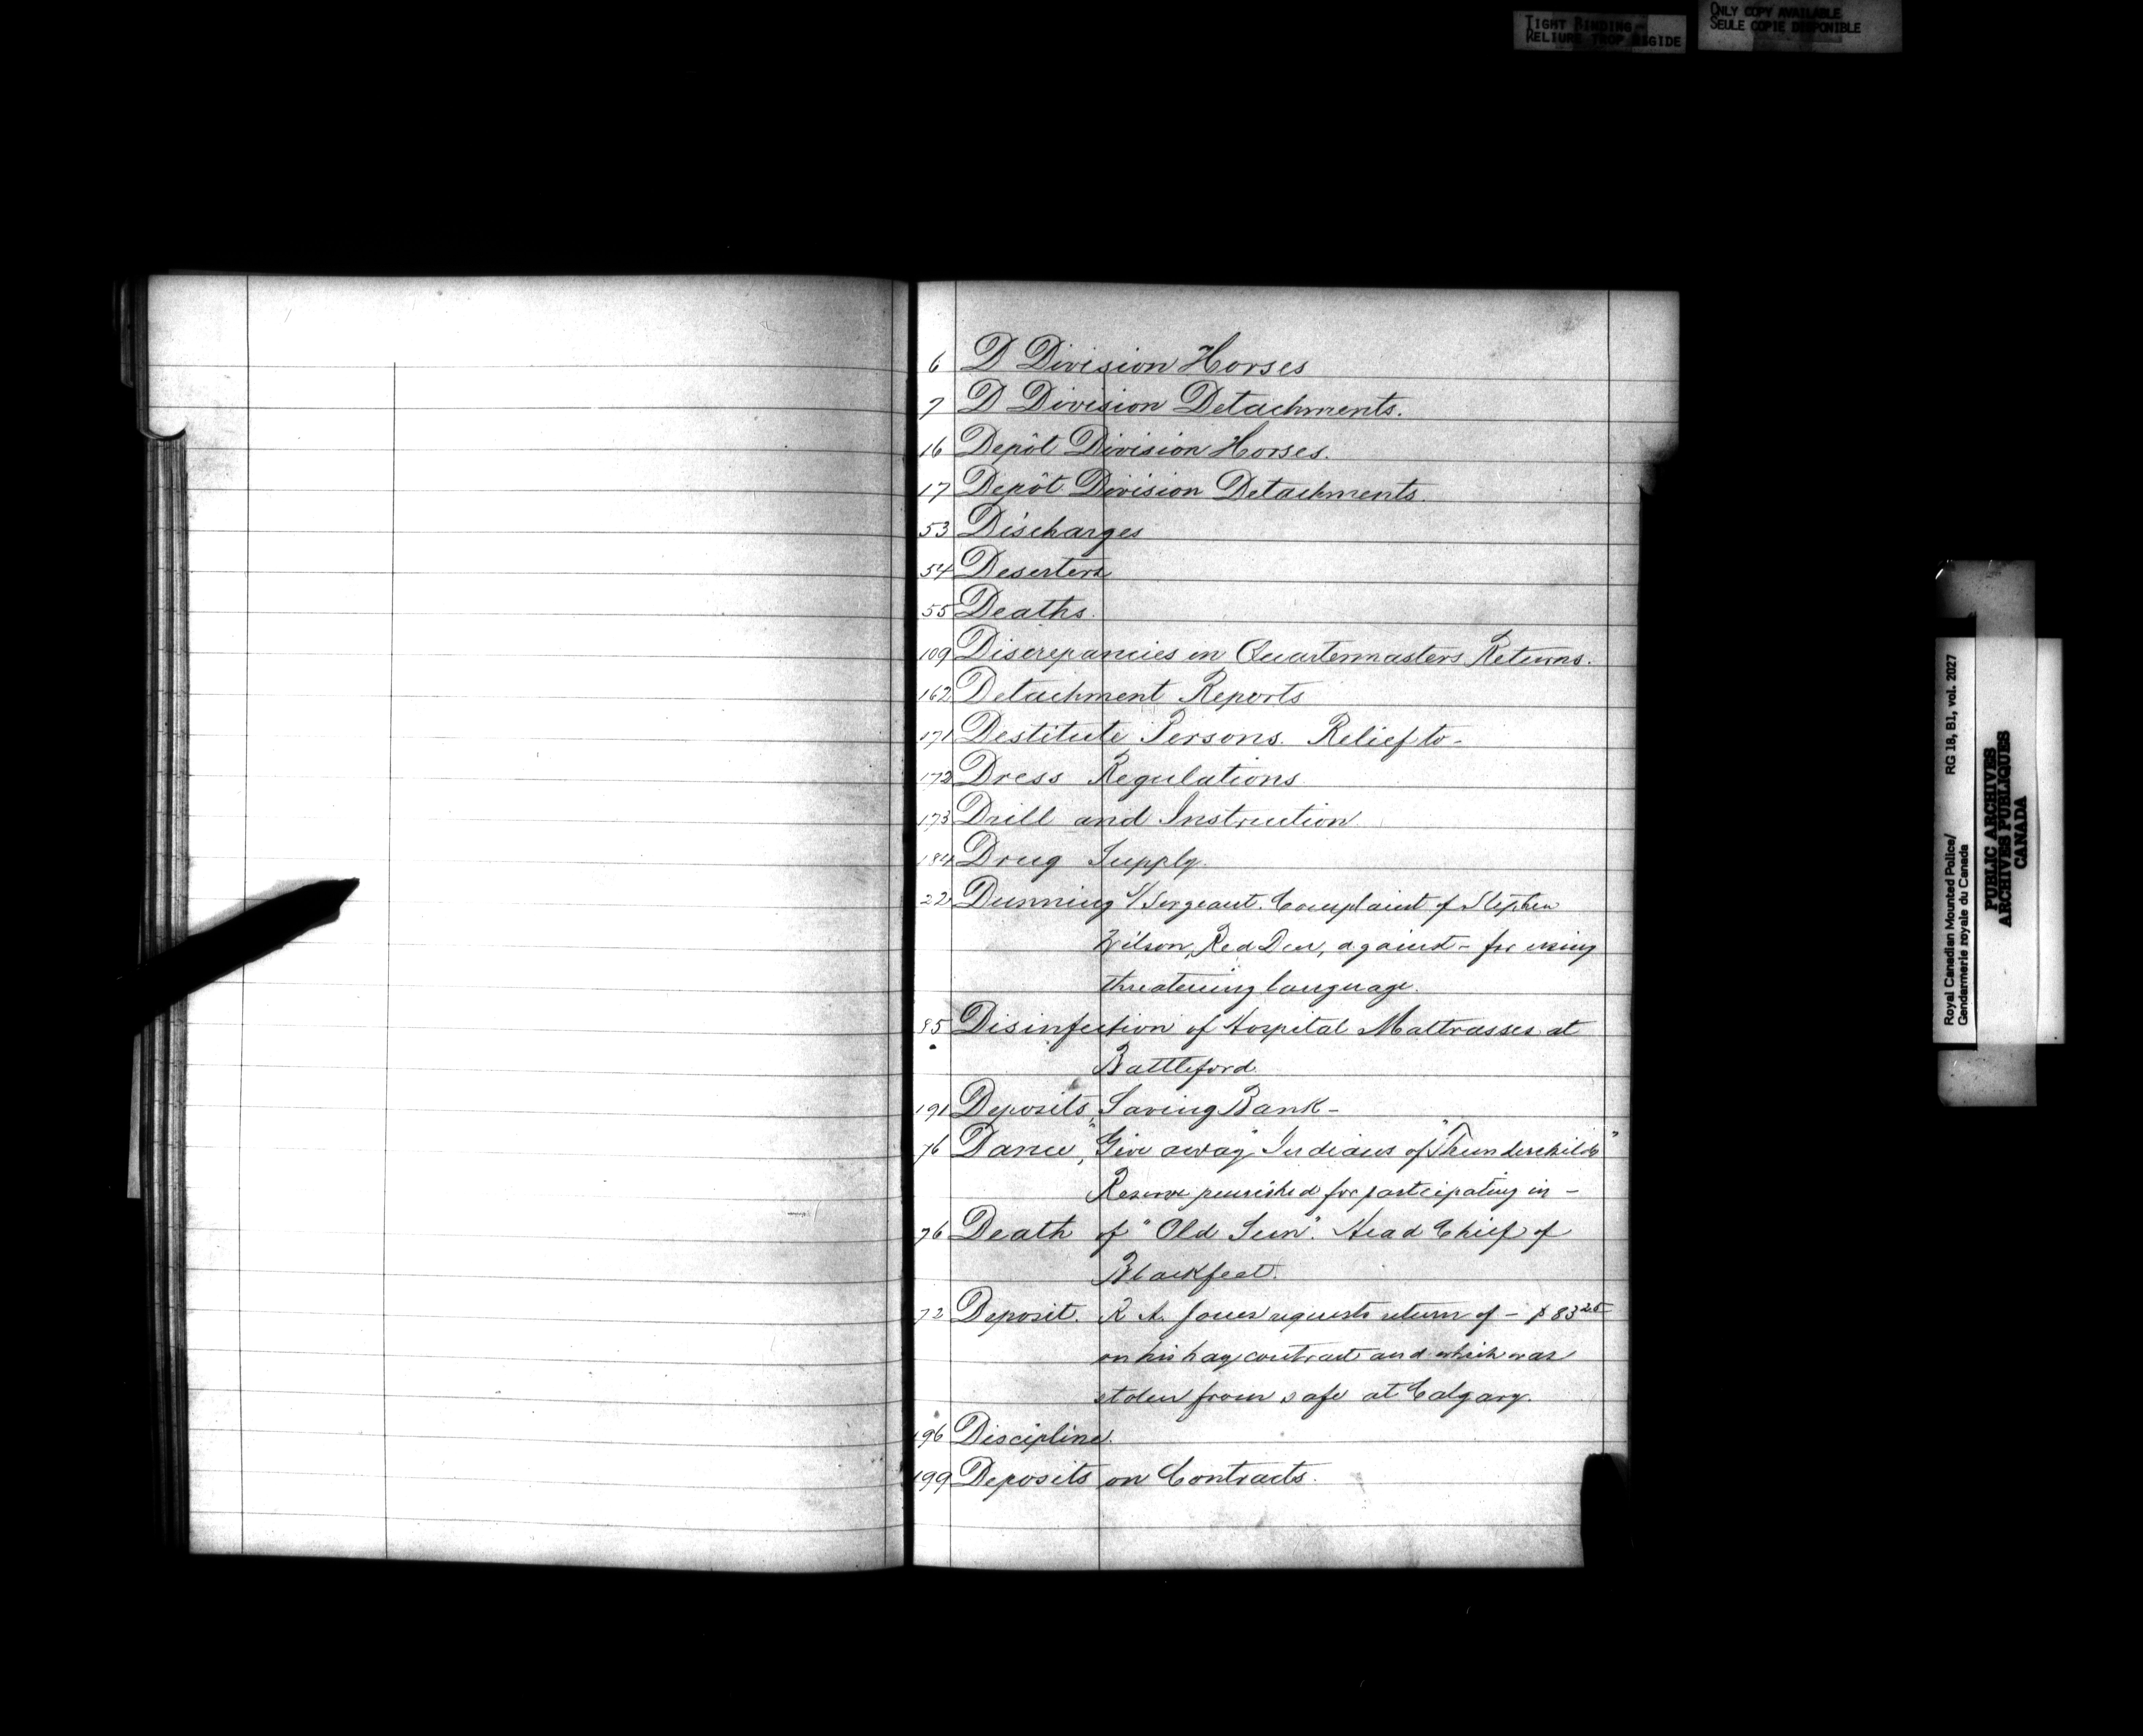 TIGHT BINDING-
RELIURE TROP RIGIDE
ONLY COPY AVAILABLE
SEULE COPIE DISPONIBLE
6 D Division Horses
7 D Division Detachments.
16 Depôt Division Horses.
17 Depôt Division Detachments.
53 Discharges
54 Deserters
55 Deaths.
109 Discrepancies in Quartermasters Returns.
162 Detachment Reports
171 Destitute Persons. Relief to-
172 Dress Regulations
173 Drill and Instruction
184 Drug Supply.
22 Dunning S/Sergeant. Complaint of Stephen
Wilson, Red Deer, against - for using
threatening language.
85 Disinfection of Hospital Mattrasses at
Battleford
191 Deposits, Saving Bank-
76 Dance, "Give away" Indians of "Thunderchilds"
Reserve punished for participating in -
76 Death of "Old Sun". Head Chief of
Blackfeet.
72 Deposit. R A. Jones requests return of - $83.25
on his hay contract and which was
stolen from safe at Calgary.
196 Discipline.
199 Deposits on Contracts.
Royal Canadian Mounted Police/ RG 18, B1, vol. 2027
Gendarmerie royale du Canada
PUBLIC ARCHIVES
ARCHIVES PUBLIQUES
CANADA